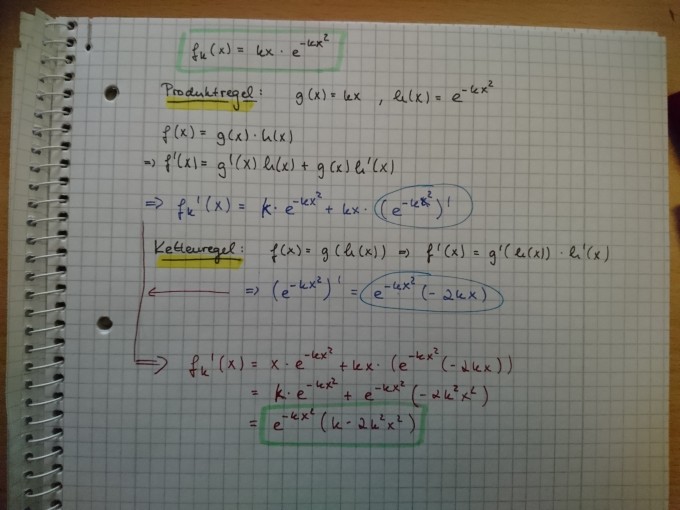 fₖ(x) = kx · e^(-kx²)
Produktregel: g(x) = kx , h(x) = e^(-kx²)
f(x) = g(x) · h(x)
=> f'(x) = g'(x) h(x) + g(x) h'(x)
=> fₖ'(x) = k · e^(-kx²) + kx · (e^(-kx²))'
Kettenregel: f(x) = g(h(x)) => f'(x) = g'(h(x)) · h'(x)
=> (e^(-kx²))' = e^(-kx²) (-2kx)
=> fₖ'(x) = x · e^(-kx²) + kx · (e^(-kx²) (-2kx))
= k · e^(-kx²) + e^(-kx²) (-2k²x²)
= e^(-kx²) (k - 2k²x²)